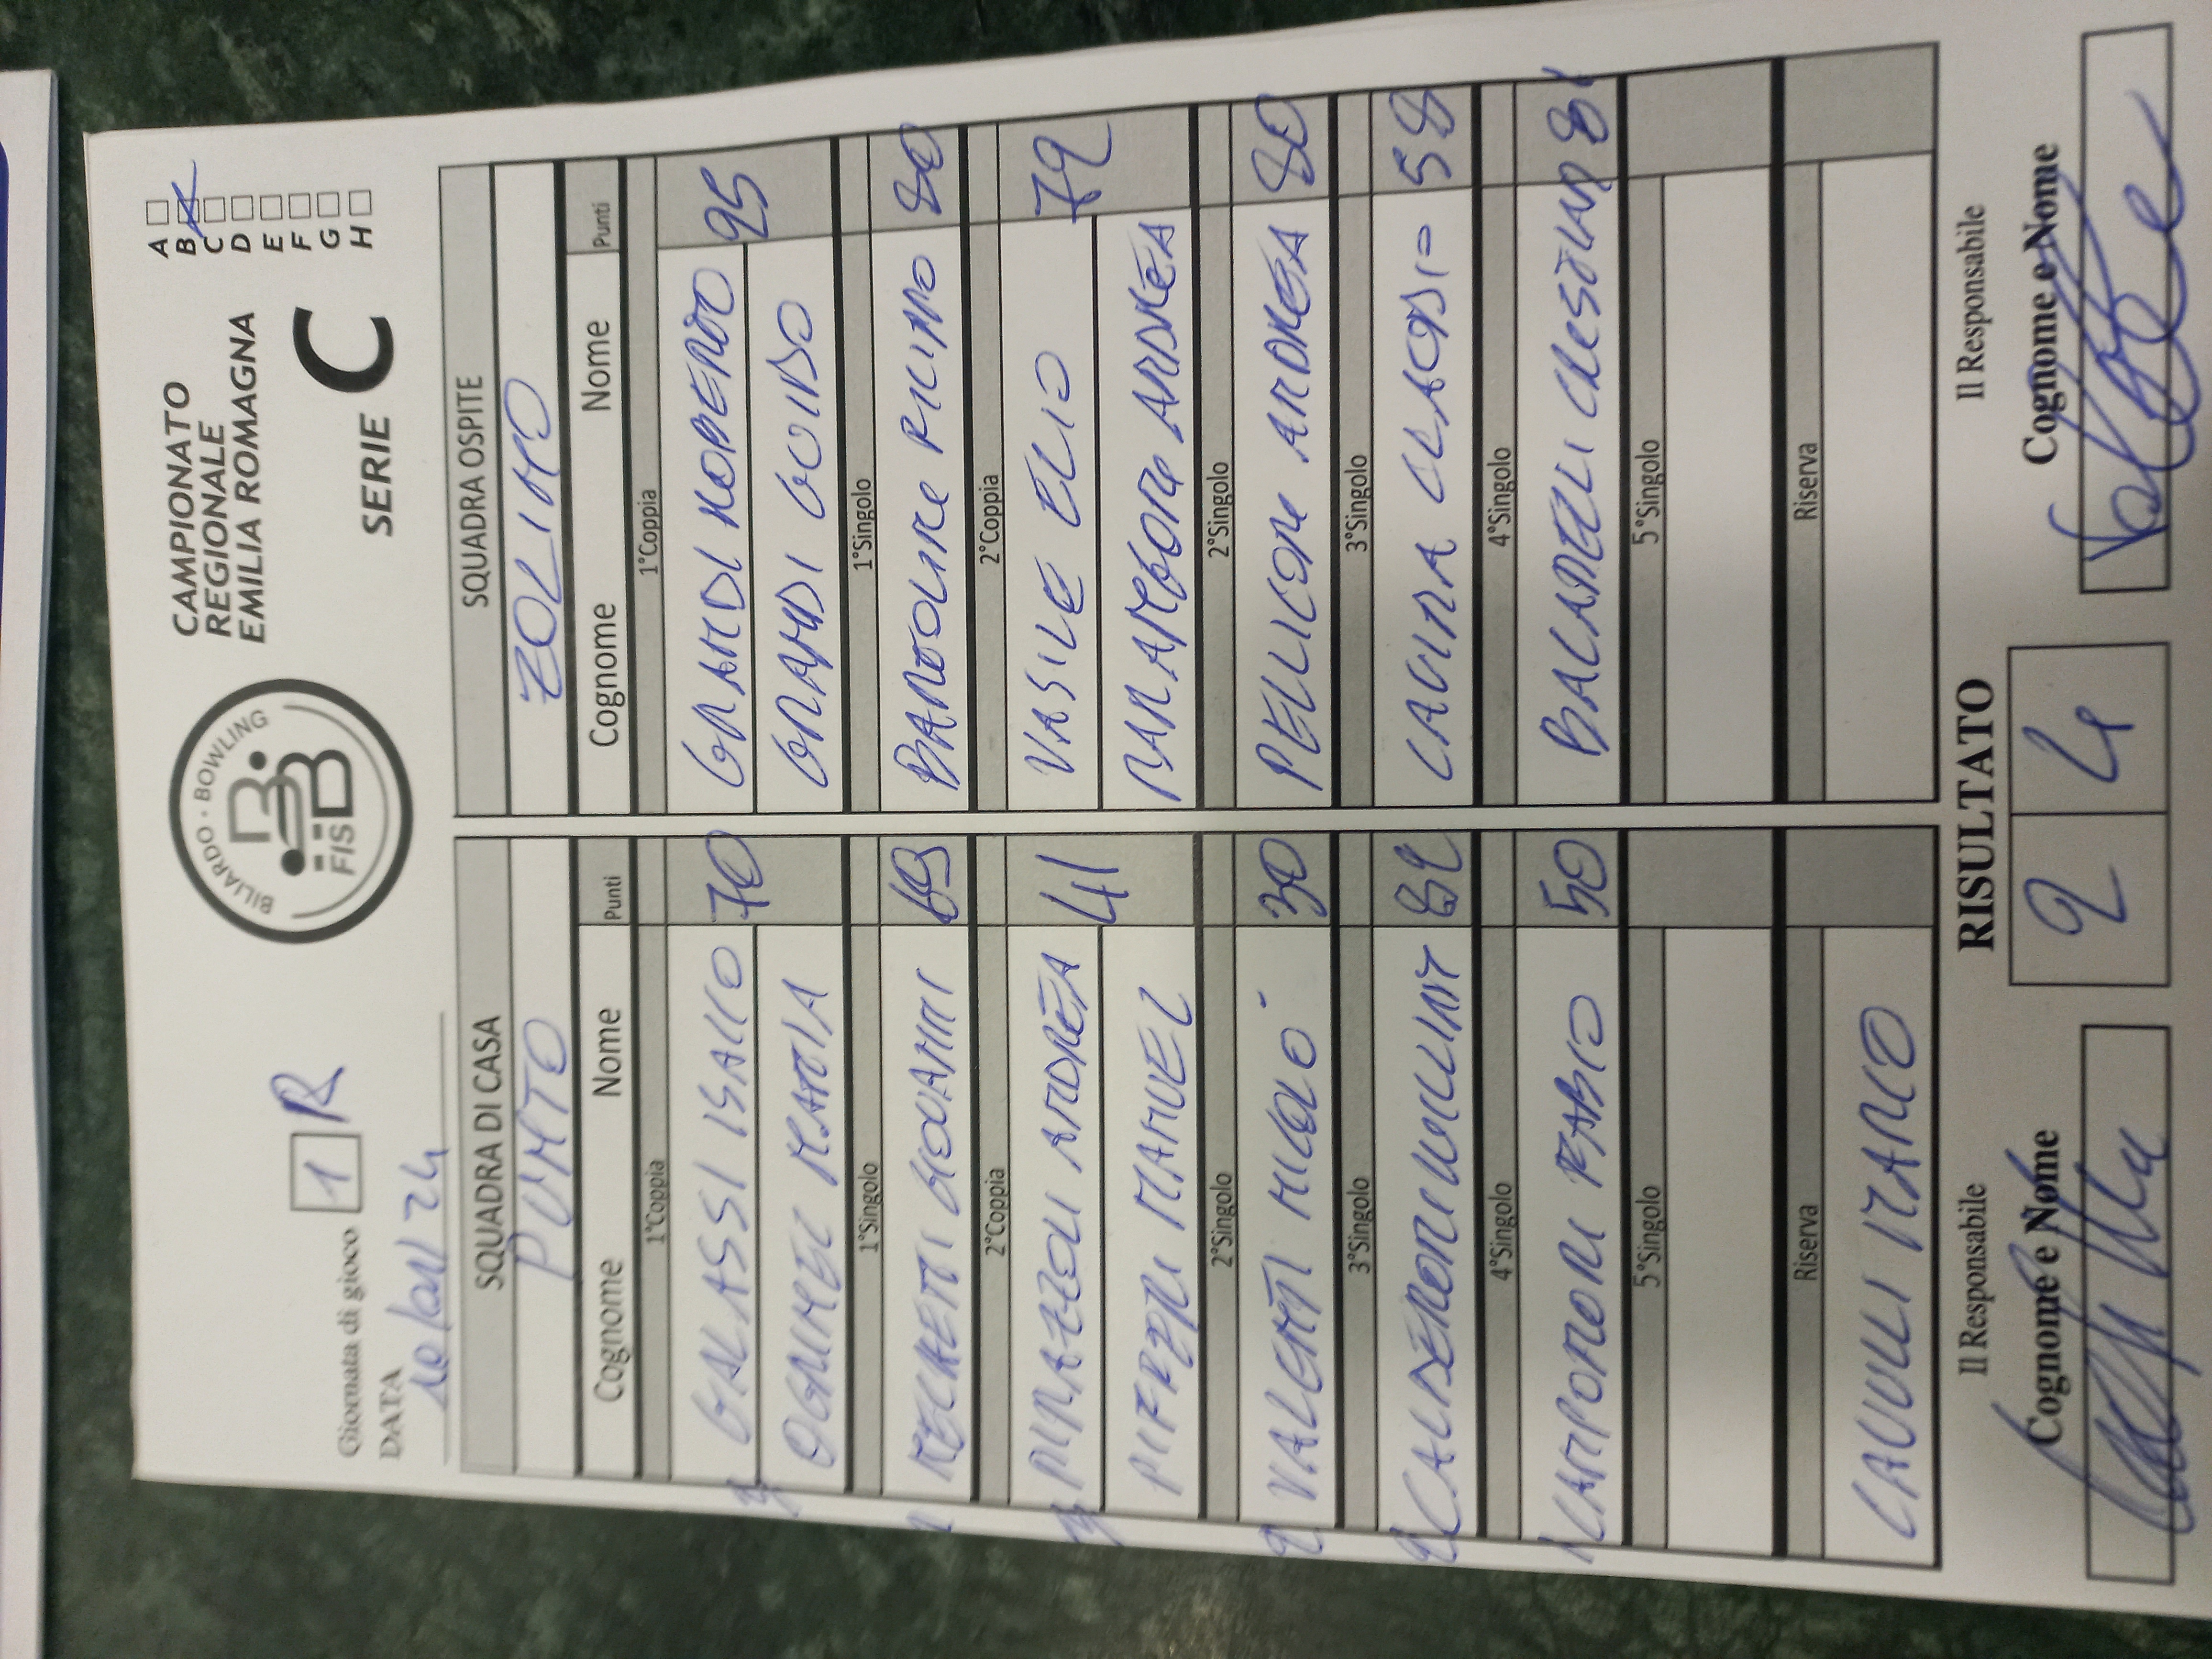 BILIARDO · BOWLING
FISBB
CAMPIONATO
REGIONALE
EMILIA ROMAGNA
SERIE C
A
B
C
D
E
F
G
H
Giornata di gioco 1 R
DATA
SQUADRA DI CASA
PUNTO
Cognome Nome Punti
1°Coppia
GALASSI ISACCO 70
MATTIA
1°Singolo
RECCHETTI GIOVANNI 69
2°Coppia
ANDREA 41
MANUEL
2°Singolo
VALENTI NICOLÒ 30
3°Singolo
CALDERONI WILLIAM
4°Singolo
CAMPORESI FABIO 50
5°Singolo
Riserva
CAVULLI MARCO
SQUADRA OSPITE
ZOLINO
Cognome Nome Punti
1°Coppia
GRANDI 95
GRANDI GUIDO
1°Singolo
80
2°Coppia
VASILE ELIO 72
ANDREA
2°Singolo
PELLICONI ANDREA 80
3°Singolo
CAVINA CLAUDIO 58
4°Singolo
5°Singolo
Riserva
RISULTATO
2 4
Il Responsabile
Cognome e Nome
Il Responsabile
Cognome e Nome